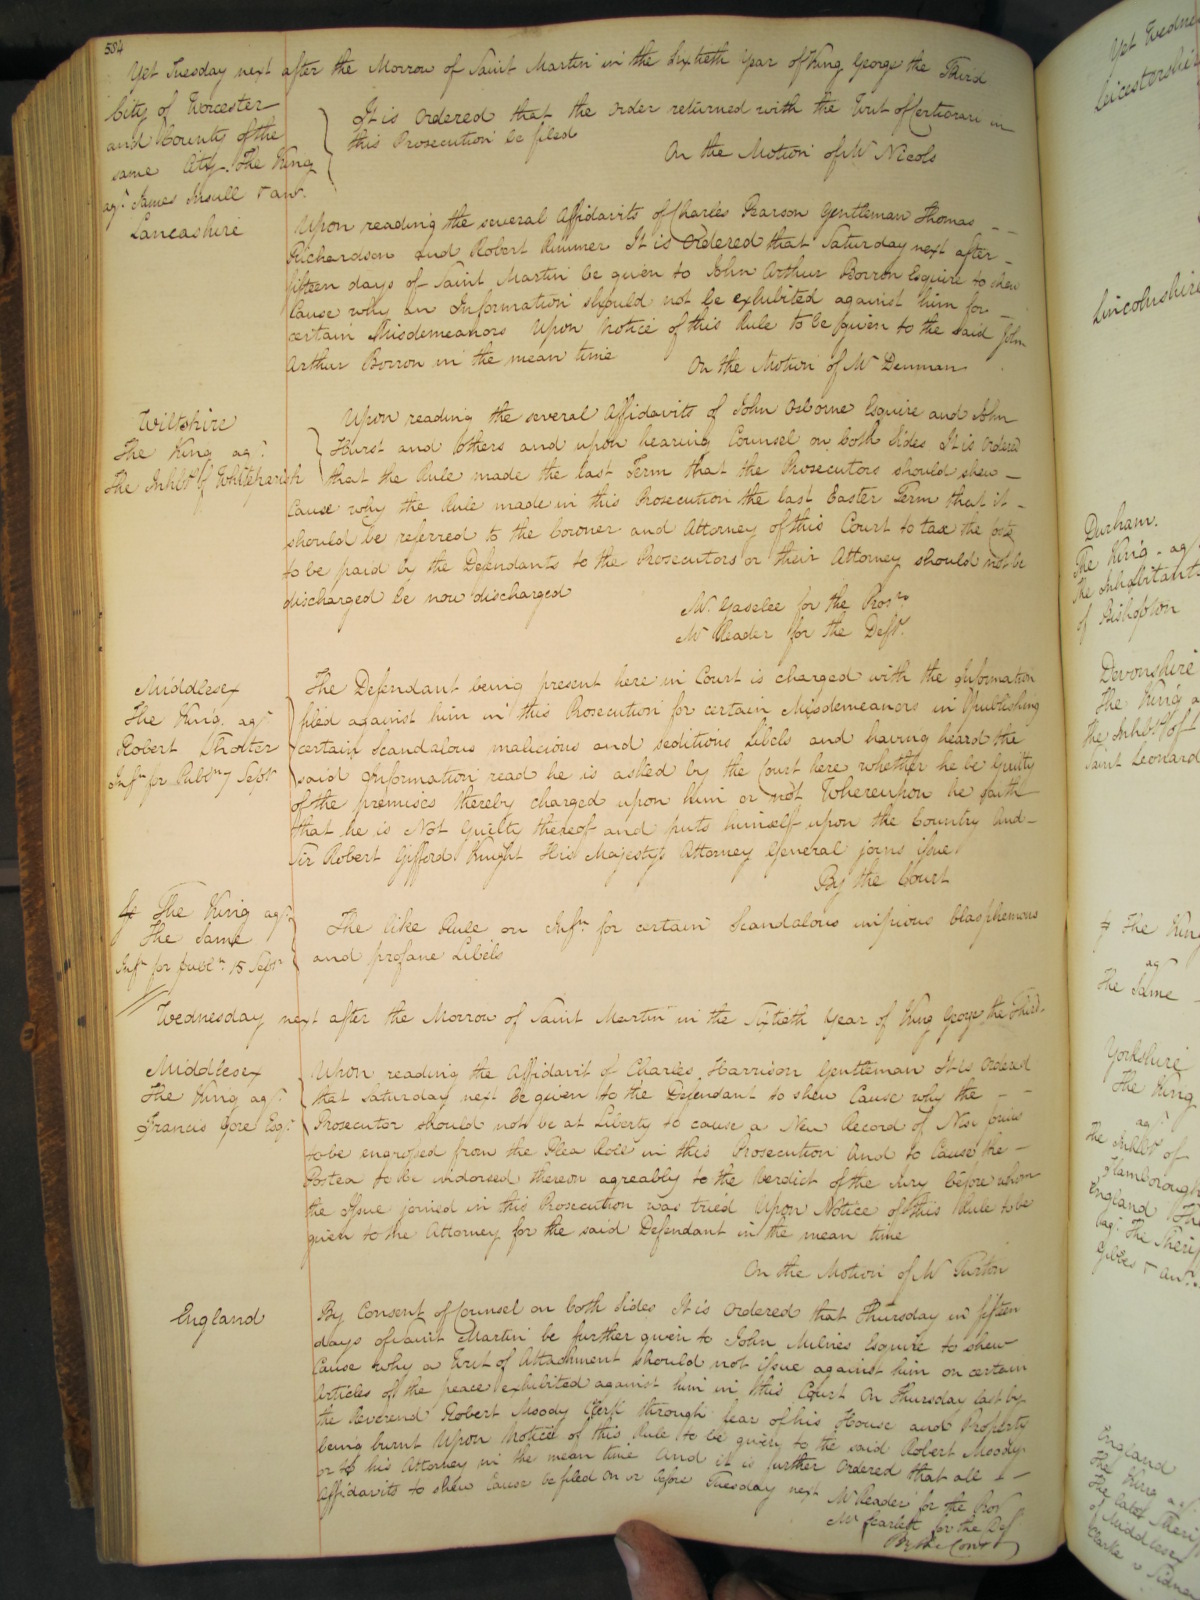 584
Yet Tuesday next after the Morrow of Saint Martin in the Sixtieth Year of King George the Third
City of Worcester
and County of the
same City. The King
agt. James Insull & anr.
It is Ordered that the Order returned with the Writ of Certiorari in
this Prosecution be filed
On the Motion of Mr Nicols
Lancashire
Upon reading the several Affidavits of Charles Pearson Gentleman Thomas
Richardson and Robert Rimmer It is Ordered that Saturday next after
fifteen days of Saint Martin be given to John Arthur Borron Esquire to shew
Cause why an Information should not be exhibited against him for
certain Misdemeanors Upon Notice of this Rule to be given to the said John
Arthur Borron in the mean time
On the Motion of Mr Denman
Wiltshire
The King agt.
The Inhbts of Whiteparish
Upon reading the several Affidavits of John Osborne Esquire and John
Hurst and others and upon hearing Counsel on both Sides It is Ordered
that the Rule made the last Term that the Prosecutors should shew
Cause why the Rule made in this Prosecution the last Easter Term that it
should be referred to the Coroner and Attorney of this Court to tax the Costs
to be paid by the Defendants to the Prosecutors or their Attorney should not be
discharged be now discharged
Mr. Gaselee for the Prosrs
Mr Reader for the Defts.
Middlesex
The King agt
Robert Shorter
Infn for Publn 7 Septr
The Defendant being present here in Court is charged with the Information
filed against him in this Prosecution for certain Misdemeanors in Publishing
certain Scandalous malicious and seditious Libels and having heard the
said Information read he is asked by the Court here whether he be Guilty
of the premises thereby charged upon him or not Whereupon he saith
that he is Not Guilty thereof and puts himself upon the Country And
Sir Robert Gifford Knight His Majestys Attorney General joins issue
By the Court
The King agt
The Same
Infn for publn 15 Septr
The like Rule on Infn for certain Scandalous impious blasphemous
and profane Libels
Wednesday next after the Morrow of Saint Martin in the Sixtieth Year of King George the Third
Middlesex
The King agt
Francis Gore Esqr
Upon reading the Affidavit of Charles Harrison Gentleman It is Ordered
that Saturday next be given to the Defendant to shew Cause why the
Prosecutor should not be at Liberty to cause a New Record of Nisi prius
to be engrossed from the Plea Roll in this Prosecution And to Cause the
Postea to be indorsed thereon agreably to the Verdict of the Jury before whom
the Issue joined in this Prosecution was tried Upon Notice of this Rule to be
given to the Attorney for the said Defendant in the mean time
On the Motion of Mr Turton
England
By Consent of Counsel on both Sides It is Ordered that Thursday in fifteen
days of Saint Martin be further given to John Milnes Esquire to shew
Cause why a Writ of Attachment should not issue against him on certain
Articles of the peace exhibited against him in this Court On Thursday last by
the Reverend Robert Moody Clerk through fear of his House and Property
being burnt Upon Notice of this Rule to be given to the said Robert Moody
or to his Attorney in the mean time And it is further Ordered that all
Affidavits to shew Cause be filed on or before Tuesday next
Mr Reader for the Pror
Mr Scarlett for the Deft
By the Court
Yet Wedne
Leicestershire
Lincolnshire
Durham.
The King agt
the Inhabitants
of Bishopton
Devonshire
The King a
the Inhbts of
Saint Leonard
The King
agt
The Same
Yorkshire
The King
agt
The Inhbts of
Flamborough
England The
The Sheriff
Gibbs & anr.
England
The King agt
The late Sheriff
of Middlesex
Clarke v Sidney